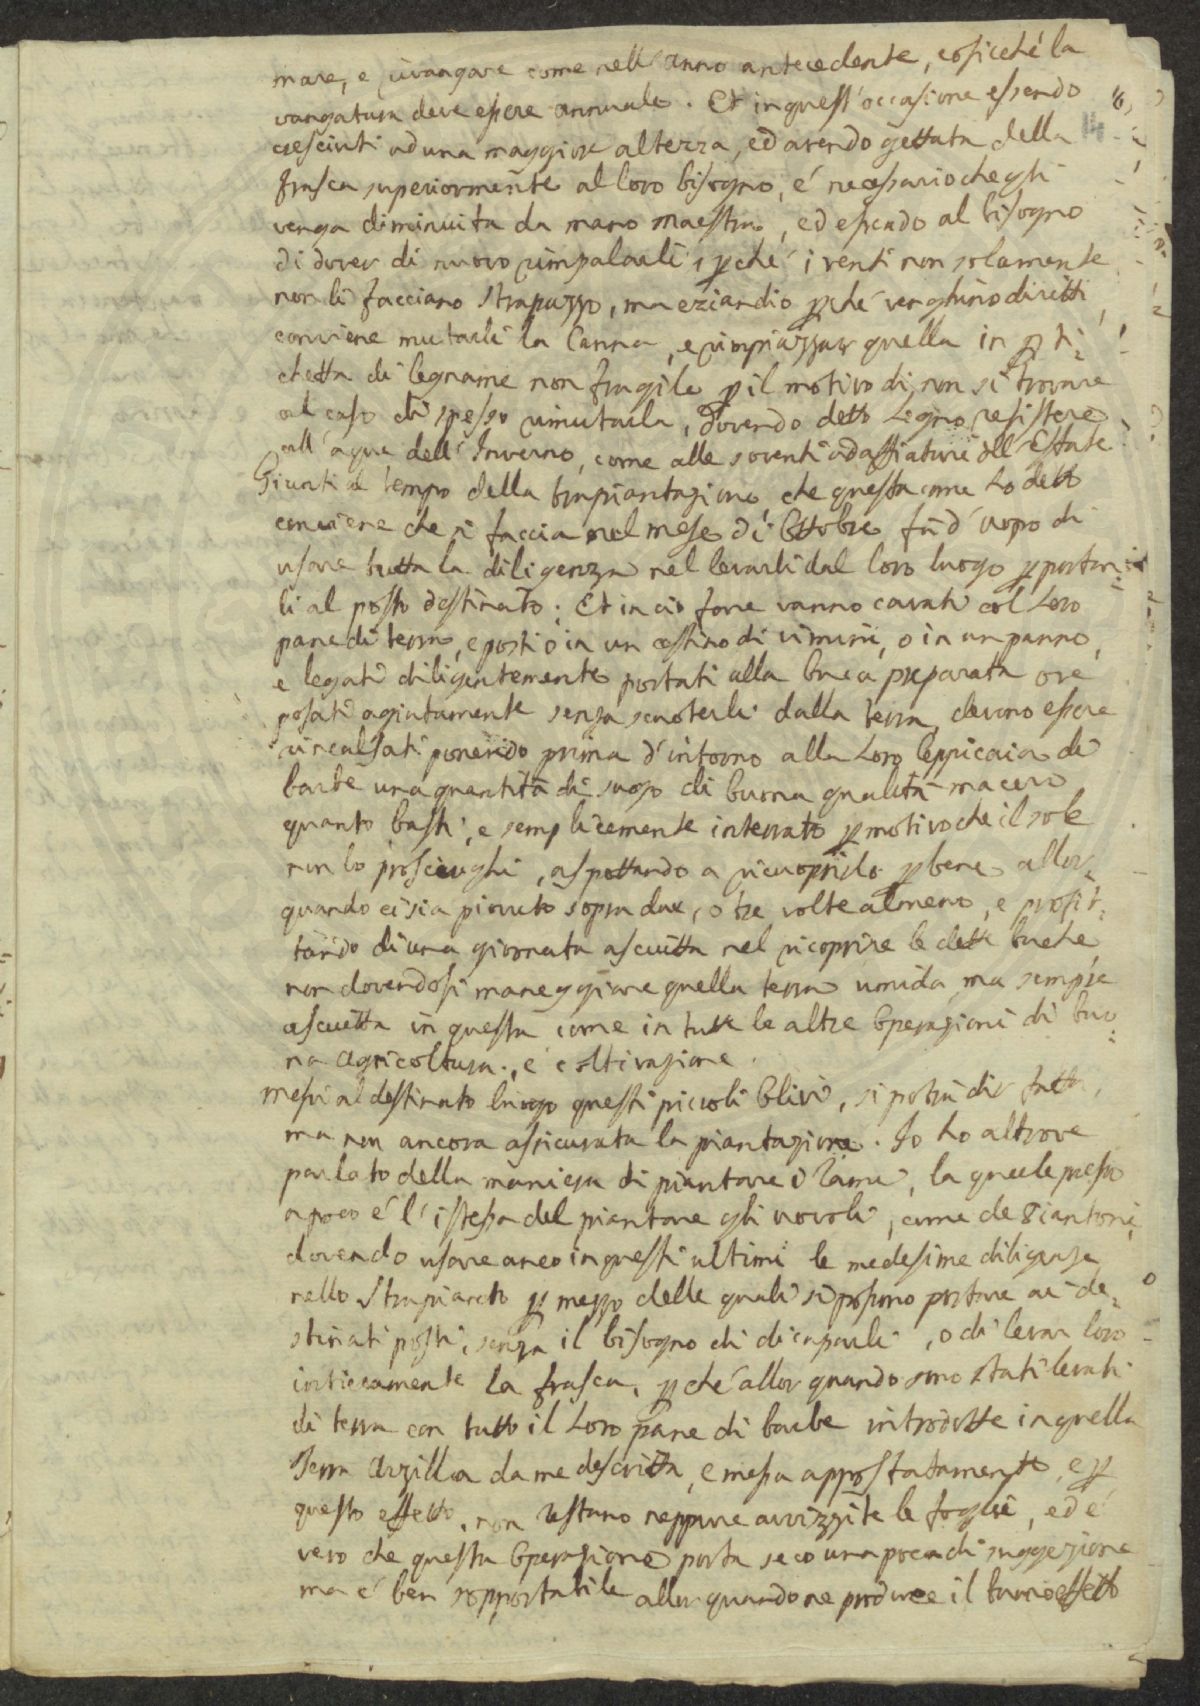 mare, e rivangare come nell'anno antecedente, cosicché la
vangatura deve essere annuale. Et in quest'occasione essendo
cresciuti ad una maggior altezza, ed avendo gettata della
frasca superiormente al loro bisogno, é necessario che gli
venga diminuita da mano maestra, ed essendo al bisogno
di dover di nuovo rimpalarli, pché i venti non solamente
non li facciano strapazzo, ma eziandio pché venghino diritti,
conviene mutarli la Canna, e rimpiazzar quella in per ti-
chetta di legname non fragile p il motivo di non si trovare
al caso di spesso rimutarla, dovendo detto Legno resistere
all'aque dell'Inverno, come alle soventi adaffiature dell'Estate
Giunti al tempo della trapiantazione, che questa come ho detto
conviene che si faccia nel mese di Ottobre, fà d'uopo di
usare tutta la diligenza nel levarli dal loro luogo p portar-
li al posto destinato. Et in ciò fare vanno cavati col Loro
pane di terra, e posti o in un cestino di vimini, o in un panno,
e legati diligentemente portati alla buca preparata ove
posati agiatamente senza scuoterli dalla terra, devono essere
rincalsati ponendo prima d'intorno alla Loro Ceppicaia di
barbe una quantità di sugo di buona qualità macero
quanto basti, e semplicemente interrato p motivo che il sole
non lo prosciughi, aspettando a ricuoprirlo p bene allor-
quando ci sia piovuto sopra due, o tre volte almeno, e profit-
tando di una giornata asciutta nel ricoprire le dette buche
non dovendosi maneggiare quella terra umida, ma sempre
asciutta in questa come in tutte le altre Operazioni di buo-
na agricoltura, e coltivazione.
Messi al destinato luogo questi piccoli Olivi, si potrà dir fatta,
ma non ancora assicurata la piantazione. Io ho altrove
parlato della maniera di piantare i Rami, la quale presso
a poco é l'istessa del piantare gli uovoli, come de Piantoni,
dovendo usare anco in questi ultimi le medesime diligenze
nello strapiarcto p mezzo delle quali si possono portare ai de-
stinati posti, senza il bisogno di dicaparli, o di levar loro
intieramente la frasca, pché allor quando sono stati levati
di terra con tutto il Loro pane di barbe introdotte in quella
Terra Argilla da me descritta, e messa appostatamente, e p
questo effetto, non restano neppure avvizzite le foglie, ed é
vero che questa Operazione porta seco una poca di suggezione
ma é ben sopportabile allor quando ne produce il buon effetto